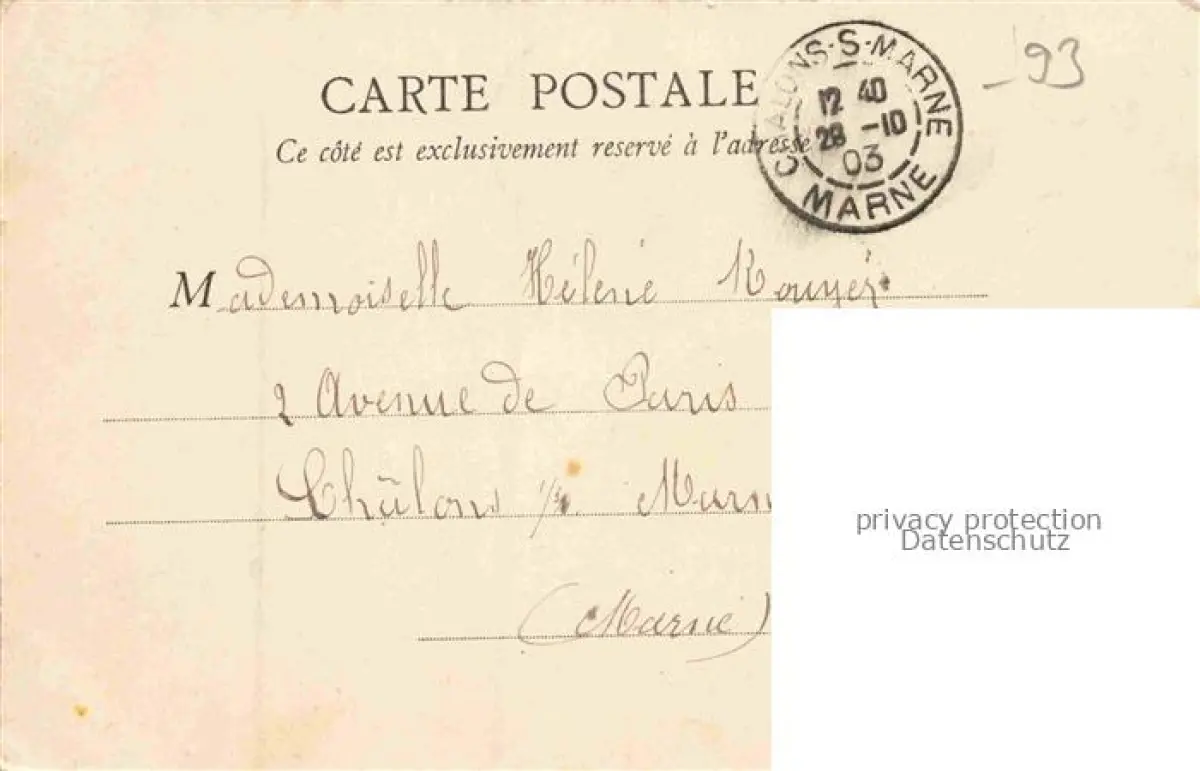 CARTE POSTALE
Ce côté est exclusivement reservé à l'adresse
CHALONS-S-MARNE
12 40
28 -10
03
MARNE
93
Mademoiselle Hélène
2 Avenue de Paris
Châlons s/
(Marne)
privacy protection
Datenschutz